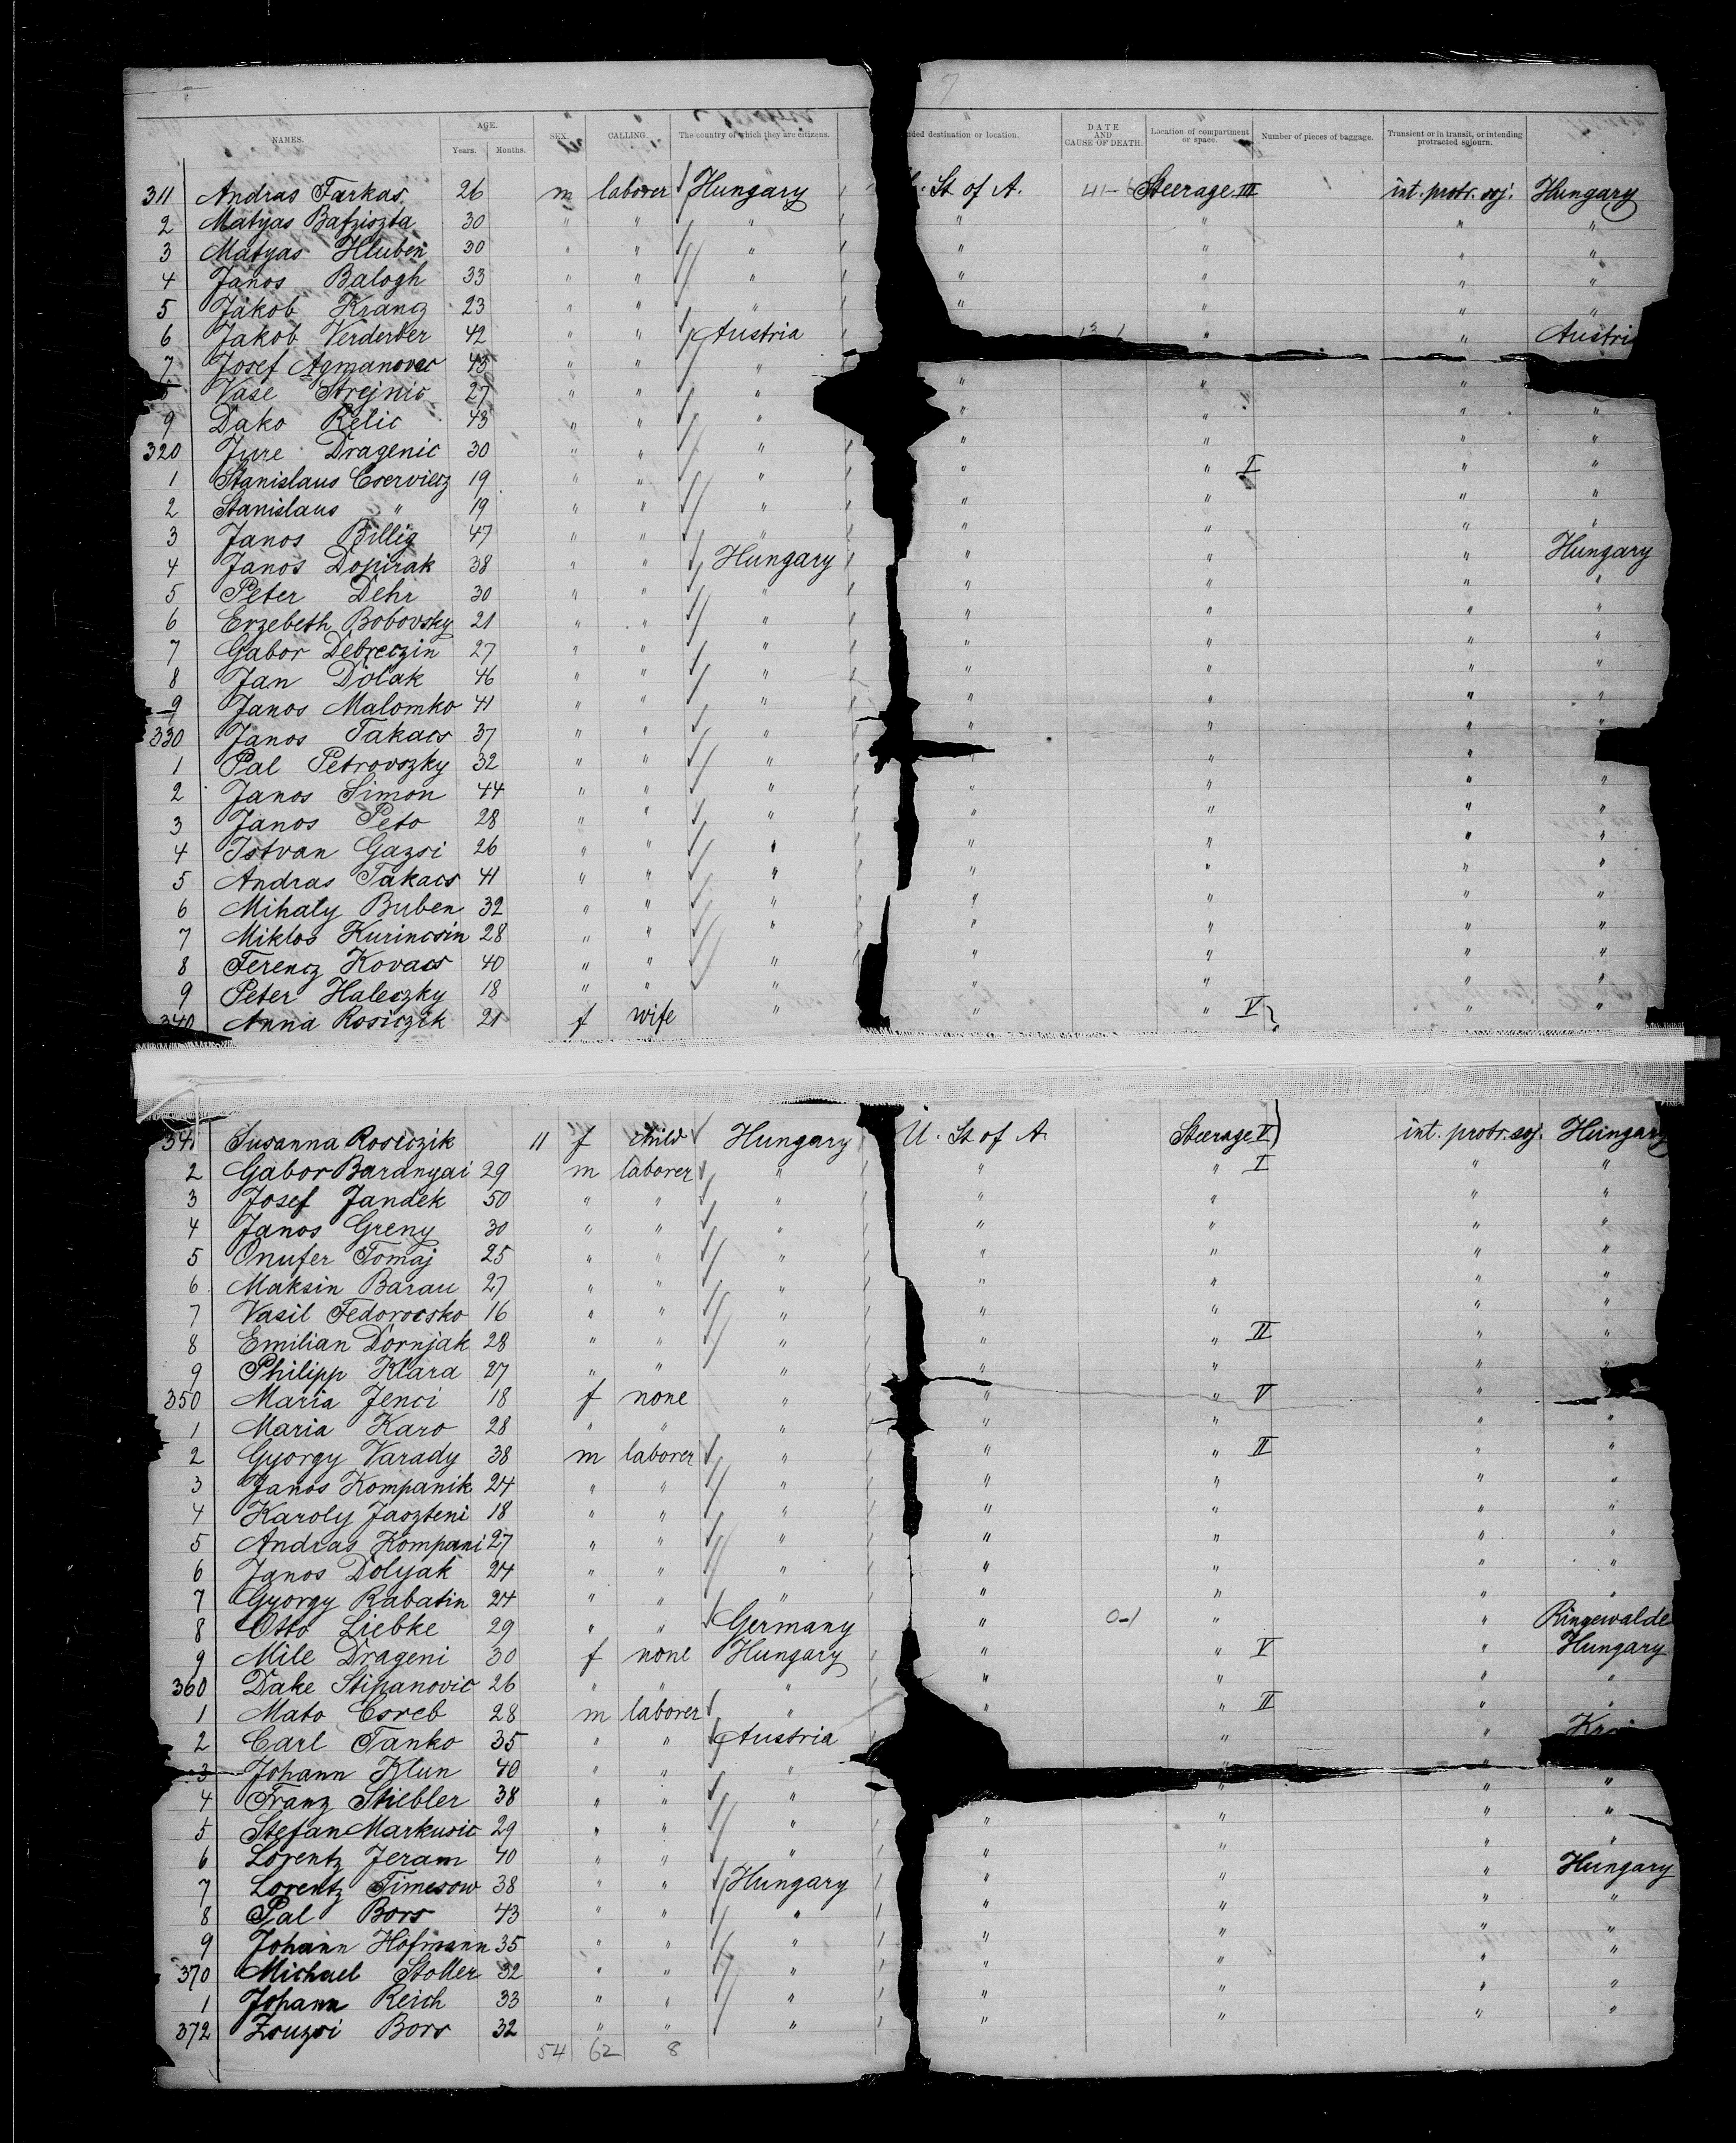 7
NAMES. AGE. Years. Months. SEX. CALLING. The country of which they are citizens. nded destination or location. DATE AND CAUSE OF DEATH. Location of compartment or space. Number of pieces of baggage. Transient or in transit, or intending protracted sojourn.
311 Andras Farkas 26 m laborer Hungary St of A. Steerage III int. protr. soj. Hungary
2 Matyas Bafziszta 30 " " " " " " "
3 Matyas Hluben 30 " " " " " " "
4 Janos Balogh 33 " " " " " " "
5 Jakob Krancz 23 " " " " " " "
6 Jakob Verderber 42 " " Austria " " Austri
7 Josef Agmanovec 45 " " " " " "
Vase Strejnic 27 " " " " " "
9 Dako Relic 43 " " " " " " "
320 Jure Dragenic 30 " " " " " " "
1 Stanislaus Cserviecz 19 " " " " " I " "
2 Stanislaus " 19 " " " " " " "
3 Janos Billig 47 " " " " " " "
4 Janos Dopirak 38 " " Hungary " " " Hungary
5 Peter Dehr 30 " " " " " " "
6 Erzebeth Bobovsky 21 " " " " " " "
7 Gabor Debreczin 27 " " " " " " "
8 Jan Dolak 46 " " " " " " "
9 Janos Malomko 41 " " " " " " "
330 Janos Takacs 37 " " " " " " "
1 Pal Petrovszky 32 " " " " " "
2 Janos Simon 44 " " " " " " "
3 Janos Peto 28 " " " " " " "
4 Istvan Gazsi 26 " " " " " " "
5 Andras Takacs 41 " " " " " " "
6 Mihaly Buben 32 " " " " " " "
7 Miklos Kurincsin 28 " " " " " " "
8 Ferencz Kovacs 40 " " " " " " "
9 Peter Haleczky 18 " " " " " " "
340 Anna Rosiczik 21 f wife " " " V " "
341 Susanna Rosiczik 11 f child Hungary U. St of A. Steerage V int. protr. soj. Hungary
2 Gabor Baranyai 29 m laborer " " " I " "
3 Josef Jandek 50 " " " " " " "
4 Janos Greny 30 " " " " " " "
5 Onufer Tomaj 25 " " " " " " "
6 Maksin Barau 27 " " " " " " "
7 Vasil Fedorocsko 16 " " " " " " "
8 Emilian Dornjak 28 " " " " " II " "
9 Philipp Klara 27 " " " " " " "
350 Maria Jenci 18 f none " " " V "
1 Maria Karo 28 " " " " " " "
2 Gyorgy Varady 38 m laborer " " " II " "
3 Janos Kompanik 24 " " " " " " "
4 Karoly Jaszteni 18 " " " " " " "
5 Andras Kompani 27 " " " " " " "
6 Janos Dolyak 24 " " " " " " "
7 Gyorgy Rabatin 24 " " " " " " "
8 Otto Liebke 29 " " Germany " 0-1 " " Ringewalde
9 Mile Drageni 30 f none Hungary " " V " Hungary
360 Dake Stipanovic 26 " " " " " " "
1 Mato Csreb 28 m laborer " " " II " "
2 Carl Tanko 35 " " Austria " "
3 Johann Klun 40 " " " " "
4 Franz Stiebler 38 " " " " " "
5 Stefan Markusic 29 " " " " " " "
6 Lorentz Jeram 40 " " " " " " "
7 Lorentz Timesow 38 " " Hungary " " " Hungary
8 Pal Bors 43 " " " " " " "
9 Johann Hofmann 35 " " " " " " "
370 Michael Stoller 32 " " " " " " "
1 Johann Reich 33 " " " " " " "
372 Zsuzsi Bors 32 " " " " " " "
54 62 8